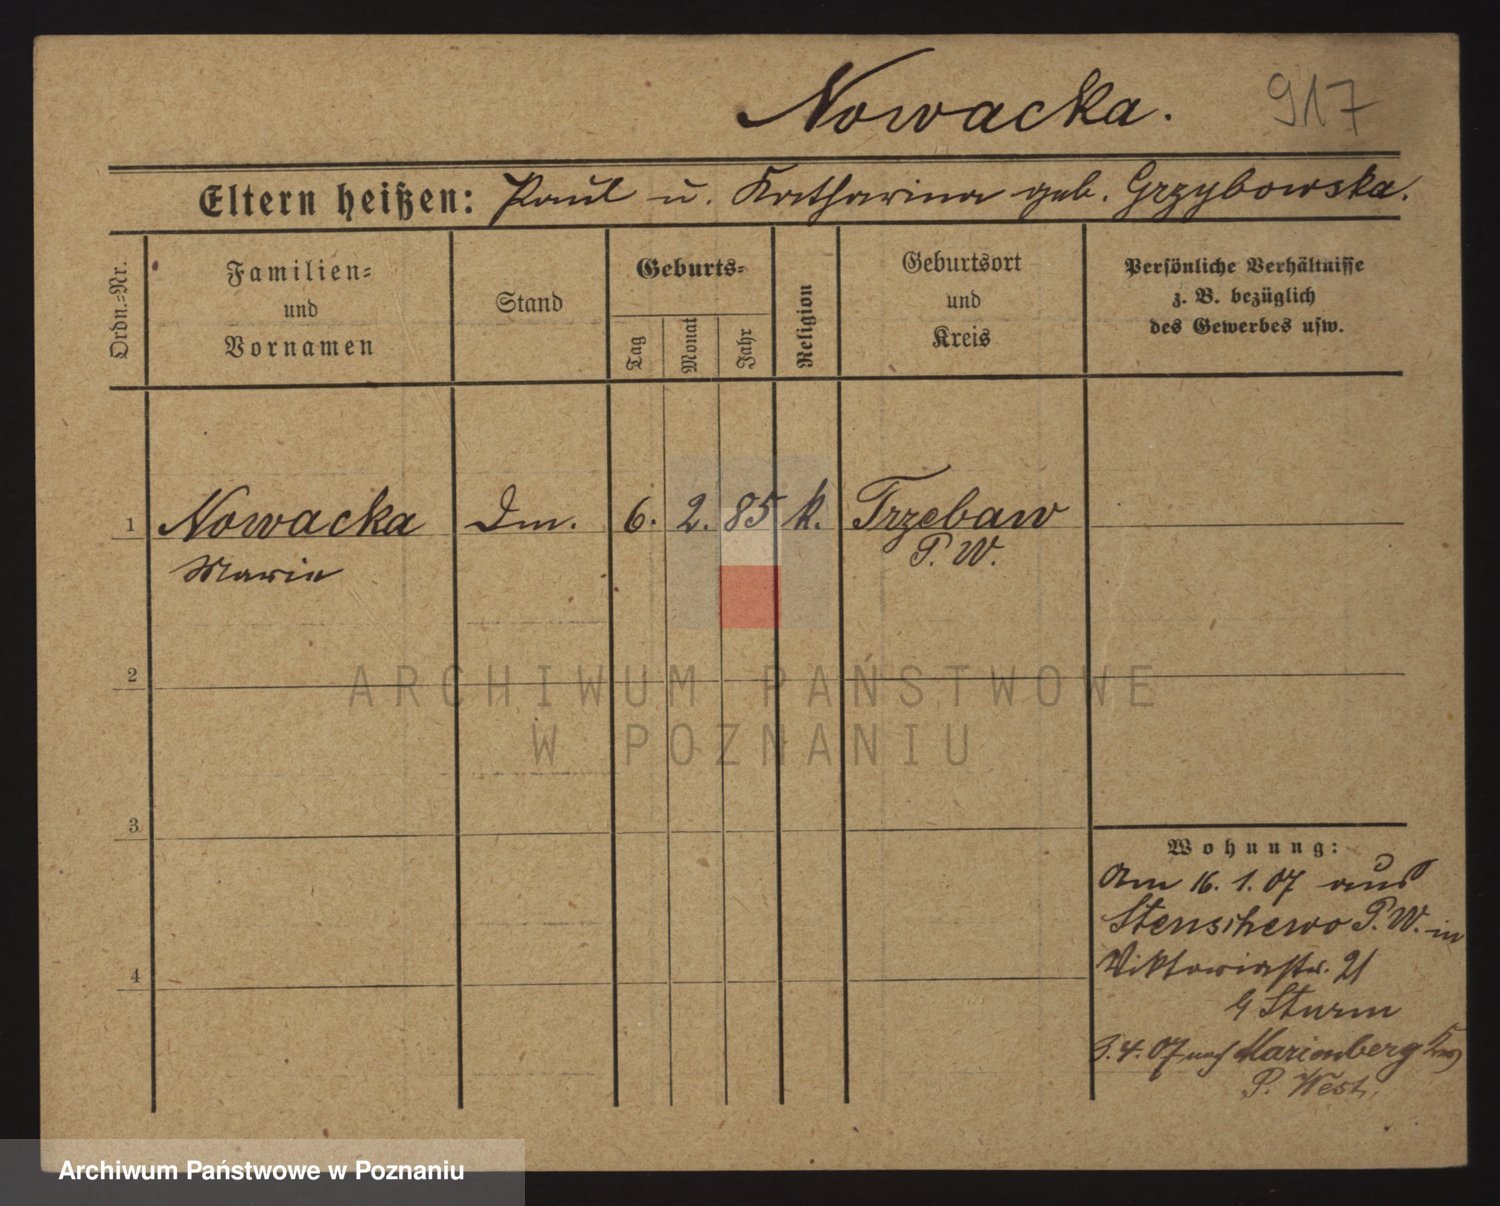 Nowacka.
917
Eltern heißen: Paul u. Katharina geb. Grzybowska.
Ordn.=Nr.
Familien=
und
Vornamen
Stand
Geburts=
Tag
Monat
Jahr
Religion
Geburtsort
und
Kreis
Persönliche Verhältnisse
z. B. bezüglich
des Gewerbes usw.
1 Nowacka Dm. 6. 2. 85 k. Trzebaw
Marie P. W.
2
3
4
Wohnung:
Am 16. 1. 07 aus
Stenschewo P. W. in
Viktoriastr. 21
Sturm
3. 4. 07 nach Marienberg
P. West.
ARCHIWUM PAŃSTWOWE
W POZNANIU
Archiwum Państwowe w Poznaniu